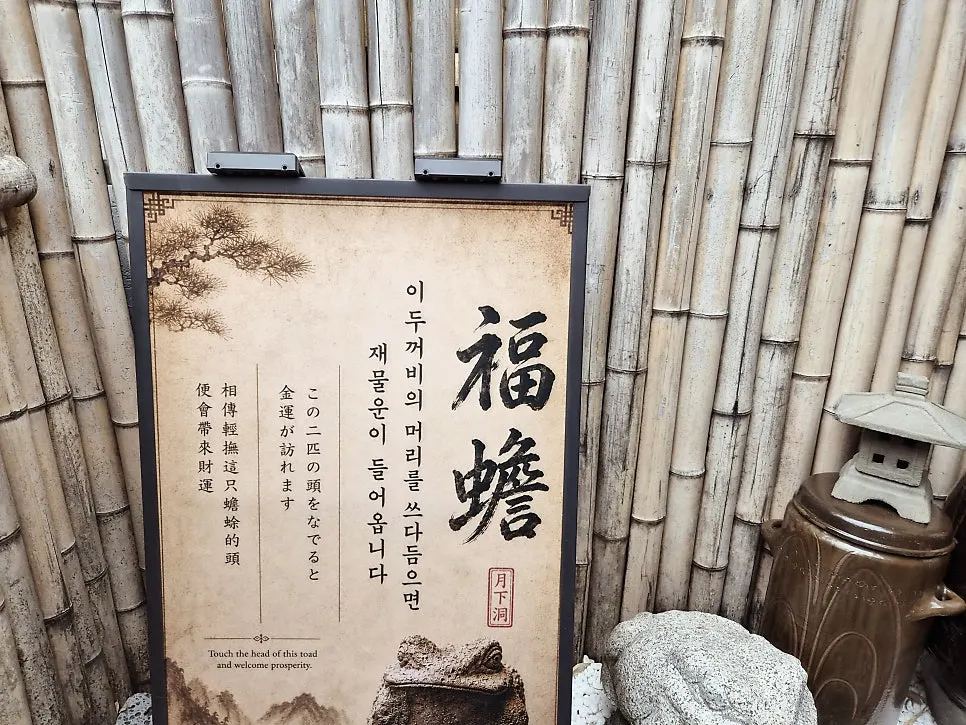 福蟾
月下洞
이 두꺼비의 머리를 쓰다듬으면
재물운이 들어옵니다
この二匹の頭をなでると
金運が訪れます
相傳輕撫這只蟾蜍的頭
便會帶來財運
Touch the head of this toad
and welcome prosperity.